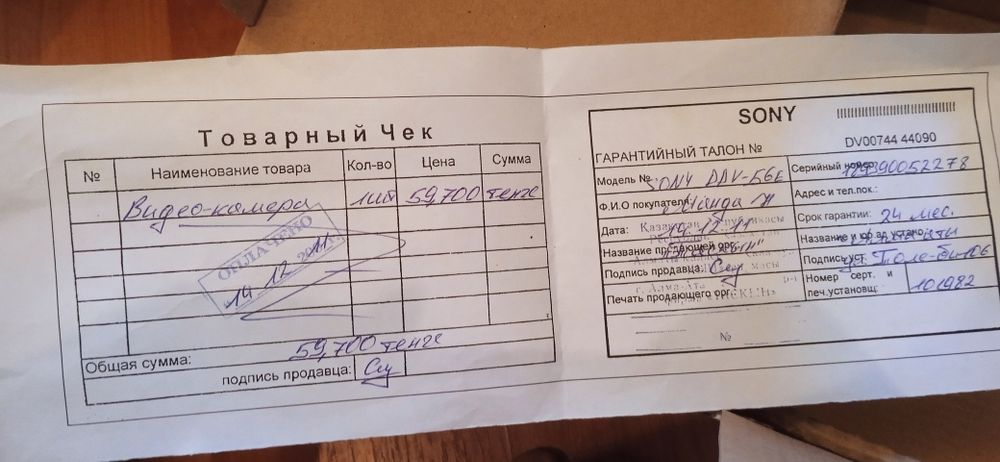 Товарный Чек
№ Наименование товара Кол-во Цена Сумма
Видео-камера 1шт 59,700 тенге
ОПЛАЧЕНО
14 12 2011
Общая сумма: 59,700 тенге
подпись продавца:
SONY
DV00744 44090
ГАРАНТИЙНЫЙ ТАЛОН №
Модель № SONY DDV-56E
Серийный номер
Ф.И.О покупателя
Адрес и тел.пок.:
Дата: 14.12.11
Срок гарантии: 24 мес.
Название продающей орг.
Название и юр.ад.устано
Подпись продавца:
Подпись уст.
Толе-би 106
г. Алма-Ата
Печать продающего орг.
Номер серт. и
печ.установщ: 101982
№